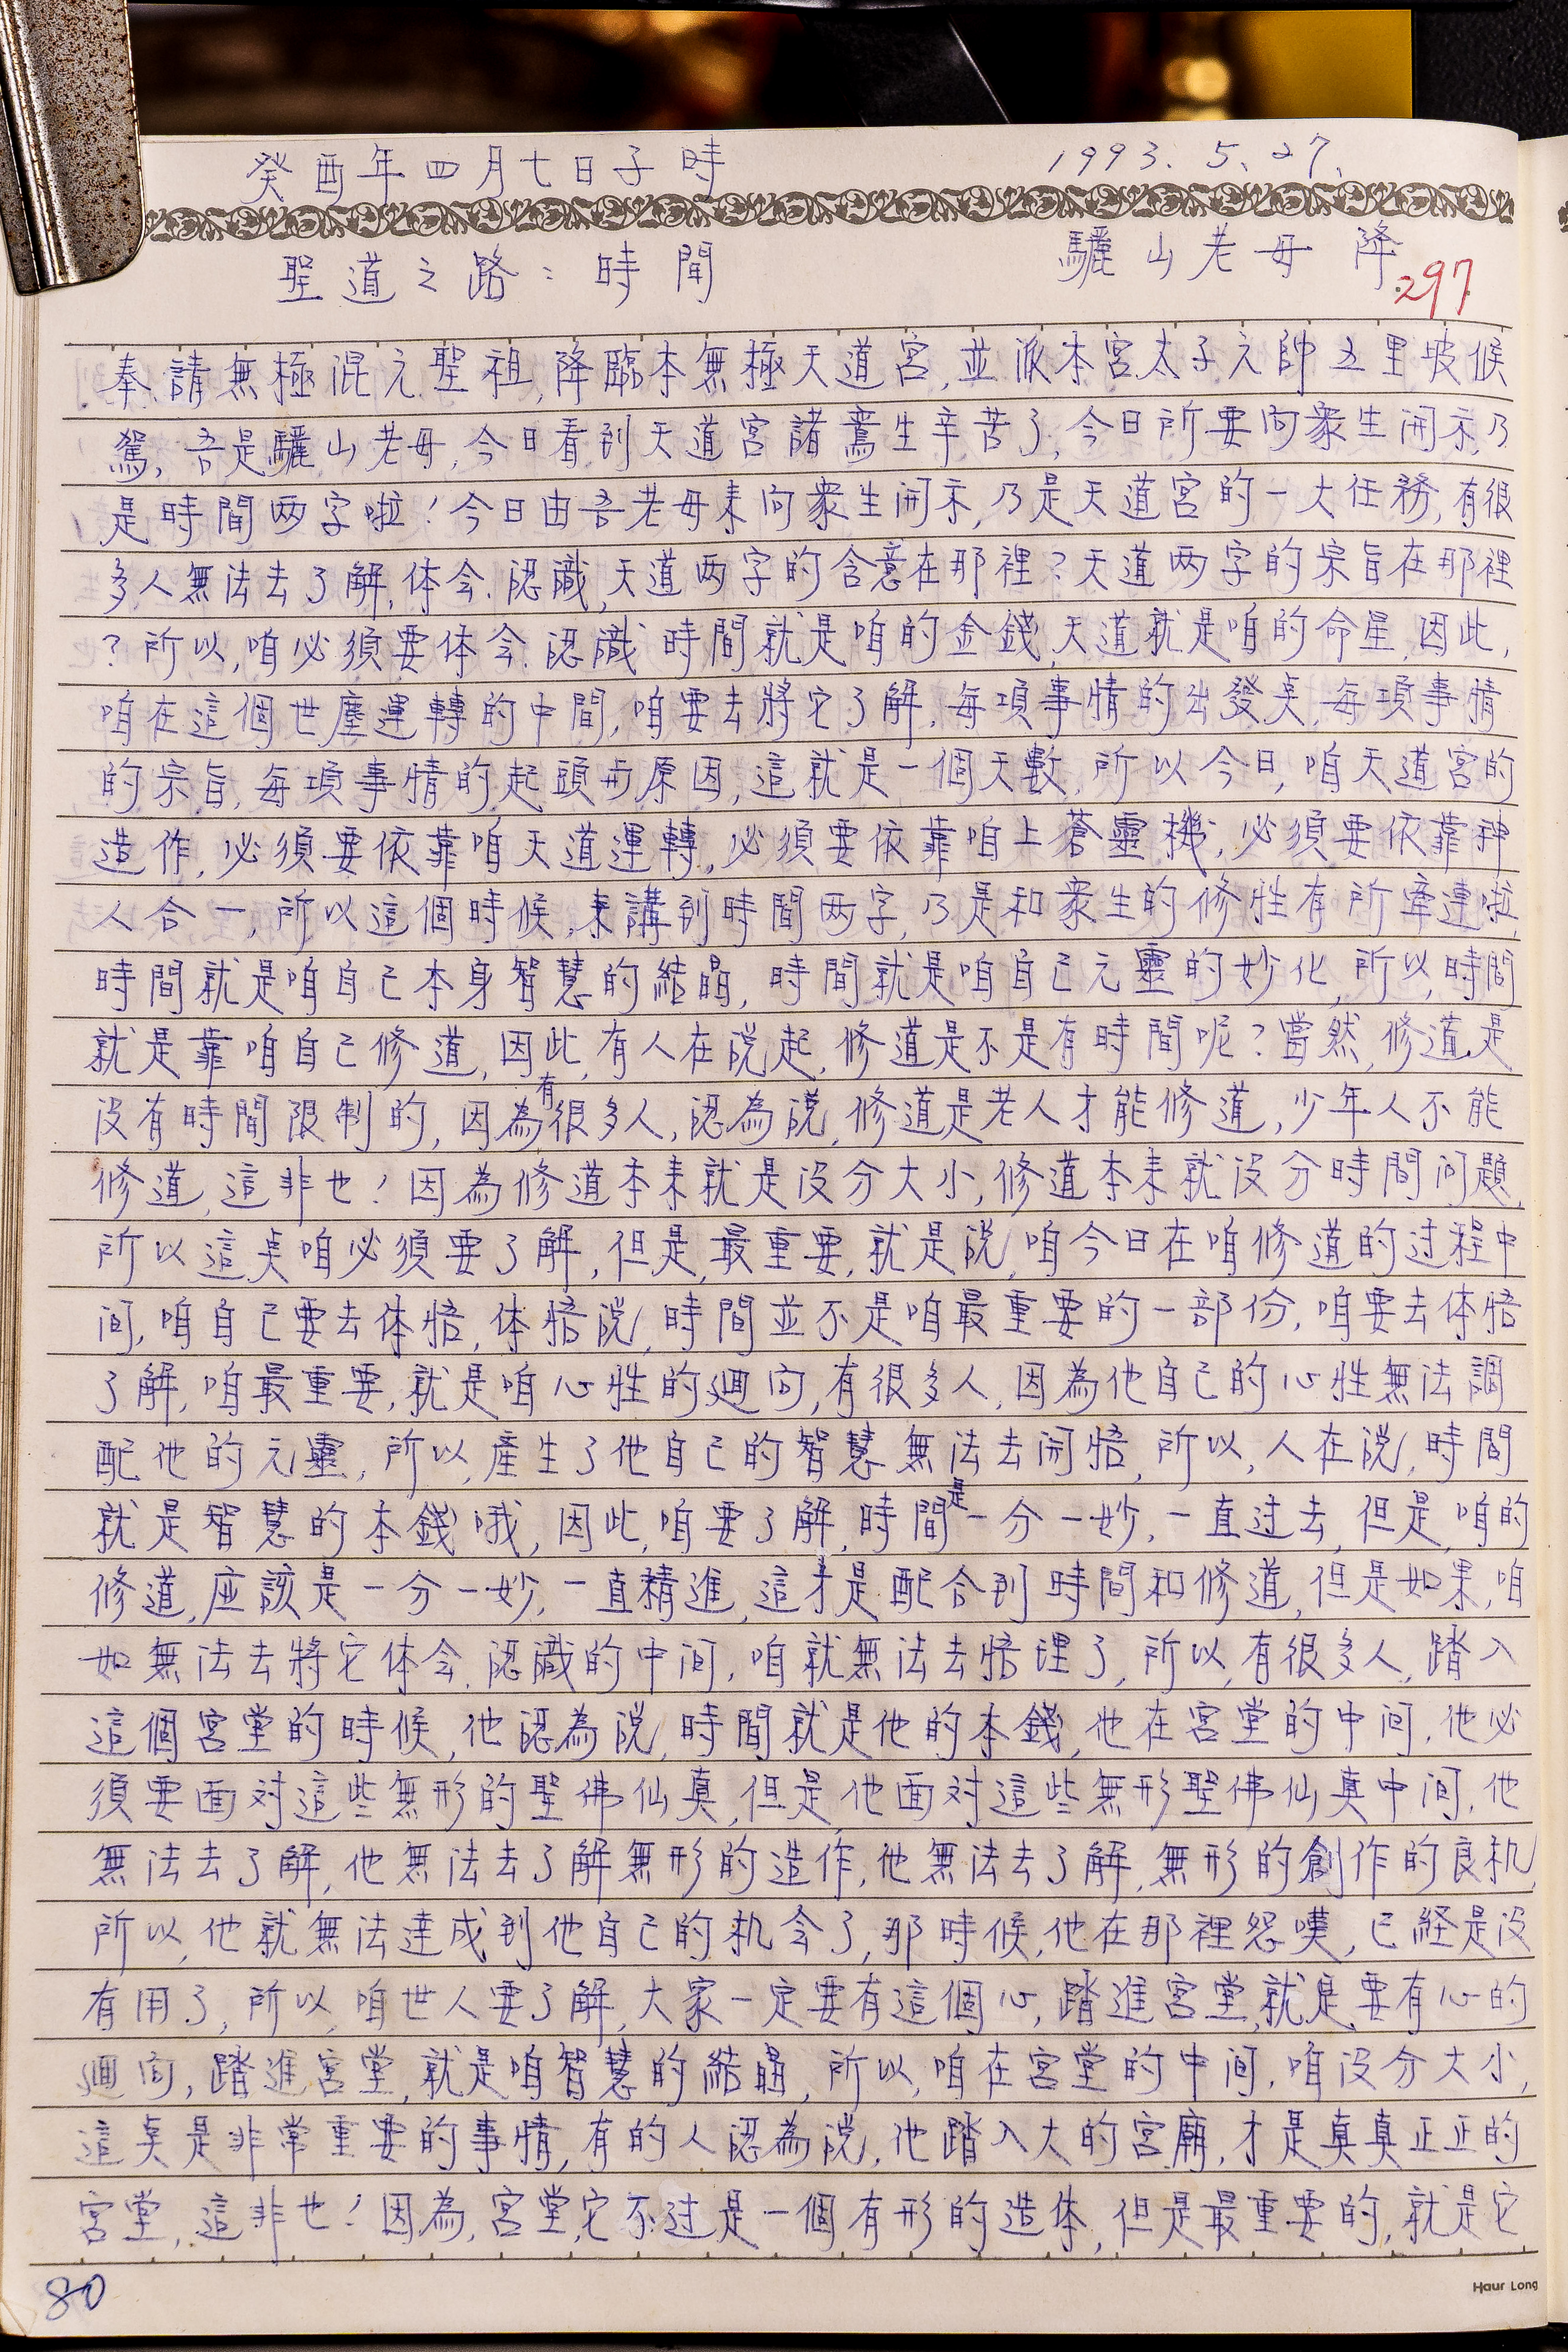 癸酉年四月七日子時
1993.5.27.
聖道之路：時間
驪山老母 降
297
奉請無極混元聖祖,降臨本無極天道宮,並派本宮太子元帥五里坡候
駕,吾是驪山老母,今日看到天道宮諸鸞生辛苦了,今日所要向衆生開示,乃
是時間两字啦!今日由吾老母来向衆生開示,乃是天道宮的一大任務,有很
多人無法去了解,体会.認識,天道两字的含意在那裡?天道两字的宗旨在那裡
?所以,咱必須要体会.認識時間就是咱的金錢,天道就是咱的命星,因此,
咱在這個世塵運轉的中間,咱要去將它了解,每項事情的出發点,每項事情
的宗旨,每項事情的起頭與原因,這就是一個天數,所以今日,咱天道宮的
造作,必須要依靠咱天道運轉,必須要依靠咱上蒼靈機,必須要依靠神
人合一,所以這個時候,来講到時間两字,乃是和衆生的修性有所牽連啦,
時間就是咱自己本身智慧的結晶,時間就是咱自己元靈的妙化,所以,時間
就是靠咱自己修道,因此,有人在說起,修道是不是有時間呢?當然,修道是
沒有時間限制的,因為有很多人,認為說,修道是老人才能修道,少年人不能
修道,這非也!因為修道本来就是沒分大小,修道本来就沒分時間问題,
所以這点咱必須要了解,但是,最重要,就是說,咱今日在咱修道的过程中
间,咱自己要去体悟,体悟說,時間並不是咱最重要的一部份,咱要去体悟
了解,咱最重要,就是咱心性的廻向,有很多人,因為他自己的心性無法調
配他的元靈,所以,產生了他自己的智慧無法去開悟,所以,人在說,時間
就是智慧的本錢哦,因此,咱要了解,時間是一分一妙,一直过去,但是,咱的
修道,应該是一分一妙,一直精進,這才是配合到時間和修道,但是如果,咱
如無法去將它体会.認識的中间,咱就無法去悟理了,所以,有很多人,踏入
這個宮堂的時候,他認為說,時間就是他的本錢,他在宮堂的中间,他必
須要面对這些無形的聖佛仙真,但是,他面对這些無形聖佛仙真中间,他
無法去了解,他無法去了解無形的造作,他無法去了解,無形的創作的良机,
所以,他就無法達成到他自己的机会了,那時候,他在那裡怨嘆,已経是沒
有用了,所以,咱世人要了解,大家一定要有這個心,踏進宮堂,就是要有心的
廻向,踏進宮堂,就是咱智慧的結晶,所以,咱在宮堂的中间,咱沒分大小,
這点是非常重要的事情,有的人認為說,他踏入大的宮廟,才是真真正正的
宮堂,這非也!因為,宮堂,它不过是一個有形的造体,但是最重要的,就是它
80
Haur Long